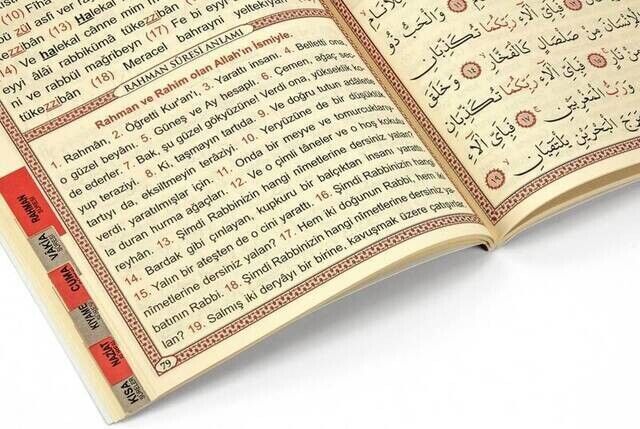 (10)
Felhabbü zül asfi ver rayhân
(13) Fe bi eyyi
(14) Halekal insâne
ve halekal cânne min mim
(16) Fe bi eyyi âlâi rabbikümâ tükezzibân
(17)
ni ve rabbül mağribeyn
(18) Fe bi eyyi
tükezzibân
Meracel bahrayni yeltekıyan
RAHMAN SÛRESİ ANLAMI
Rahman ve Rahim olan Allah'ın ismiyle.
1. Rahmân, 2. Öğretti Kur'an'ı, 3. Yarattı insanı. 4. Belletti ona,
o güzel beyânı. 5. Güneş ve Ay hesaplı. 6. Çemen, ağaç sec-
de ederler. 7. Bak, şu güzel gökyüzüne! Verdi ona, yükseklik ko-
yup teraziyi. 8. Ki, taşmayın tartıda. 9. Ve doğru tutun adâletle
tartıy da, eksiltmeyin terâziyi. 10. Yeryüzüne de bir düşüklük
verdi, yaratılmışlar için. 11. Onda bir meyve ve tomurcuklarıy-
la duran hurma ağaçları. 12. Ve o çimli tâneler ve o hoş kokulu
reyhân. 13. Şimdi Rabbinizin hangi nîmetlerine dersiniz yalan.
14. Bardak gibi çınlayan, kupkuru bir balçıktan insanı yarattı.
15. Yalın bir ateşten de o cini yarattı. 16. Şimdi Rabbinizin hangi
nîmetlerine dersiniz yalan? 17. Hem iki doğunun Rabbi, hem iki
batının Rabbi. 18. Şimdi Rabbinizin hangi nîmetlerine dersiniz ya-
lan? 19. Salmış iki deryâyı bir birine, kavuşmak üzere çatışırlar
79
RAHMAN SÛRESİ
VAKIA
CUMA
KIYAME
NAZİAT
KISA SÛRELER
وَالْحَبُّ ذُو
رَبِّكُمَا تُكَذِّبَانِ
مِنْ صَلْصَالٍ كَالْفَخَّارِ ﴿١٤﴾ وَخَلَقَ
فَبِاَيِّ اٰلَٓاءِ رَبِّكُمَا تُكَذِّبَانِ
وَرَبُّ الْمَغْرِبَيْنِ ﴿١٧﴾ فَبِاَيِّ اٰلَٓاءِ
مَرَجَ الْبَحْرَيْنِ يَلْتَقِيَانِ ﴿١٩﴾